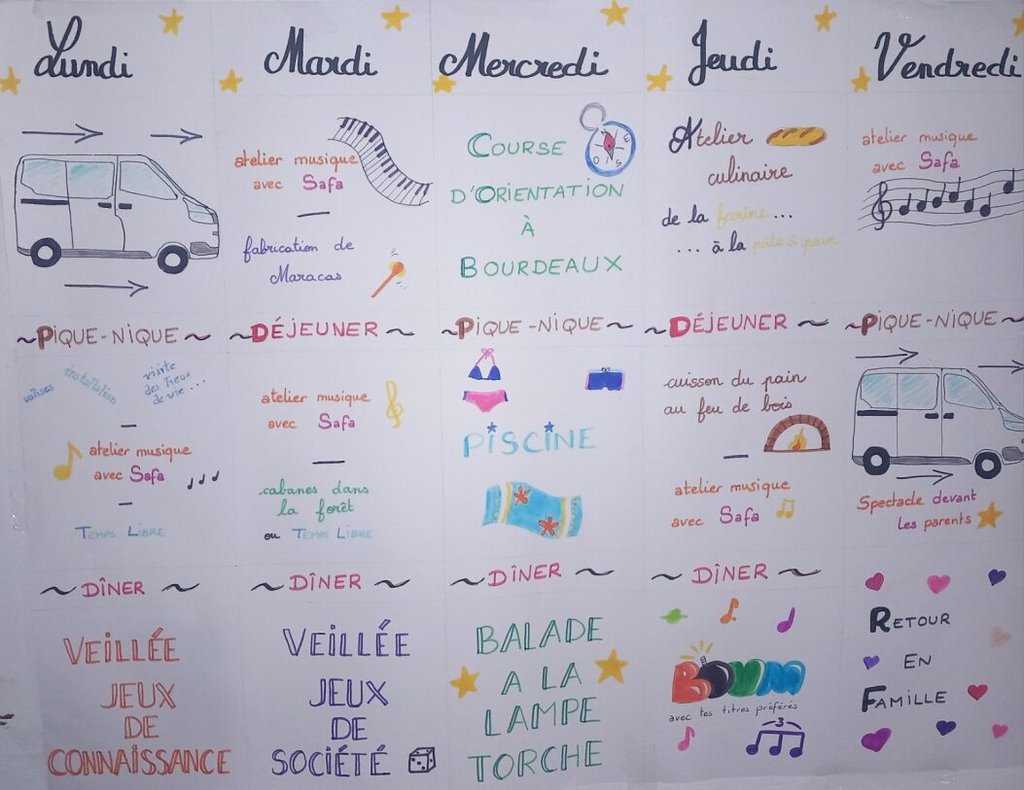 Lundi
Mardi
Mercredi
Jeudi
Vendredi
atelier musique
avec Safa
fabrication de
Maracas
COURSE
D'ORIENTATION
À
BOURDEAUX
N
E
S
O
Atelier
culinaire
de la farine...
... à la pâte à pain
atelier musique
avec Safa
~PIQUE-NIQUE~
~DÉJEUNER~
~PIQUE-NIQUE~
~DÉJEUNER~
~PIQUE-NIQUE~
valises
installation
visite
des lieux
de vie...
atelier musique
avec Safa
TEMPS LIBRE
atelier musique
avec Safa
cabanes dans
la forêt
ou TEMPS LIBRE
PISCINE
cuisson du pain
au feu de bois
atelier musique
avec Safa
Spectacle devant
les parents
~DÎNER~
~DÎNER~
~DÎNER~
~DÎNER~
VEILLÉE
JEUX
DE
CONNAISSANCE
VEILLÉE
JEUX
DE
SOCIÉTÉ
BALADE
A LA
LAMPE
TORCHE
BOUM
avec tes titres préférés
3
RETOUR
EN
FAMILLE